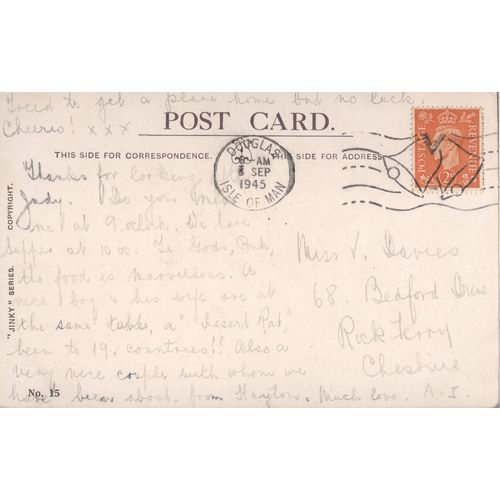 Tried to get a plane home but no luck.
Cheerio! x x x
POST CARD.
THIS SIDE FOR CORRESPONDENCE.
THIS SIDE FOR ADDRESS
DOUGLAS
-AM
SEP
1945
ISLE OF MAN
POSTAGE
REVENUE
2D
Thanks for looking
Jody. Do you
me at 9. oclock. We have
Supper at 10 oc. Ye Gods, Pork,
the food is marvellous. A
nice boy & his wife are at
the same table, a "Desert Rat,"
been to 19 countries!! Also a
very nice couple with whom we
have been about, from Huyton. Much love. A-J.
Miss V. Davies
68. Bedford Drive
Rock Ferry
Cheshire
"JINKY" SERIES. COPYRIGHT.
No. 15